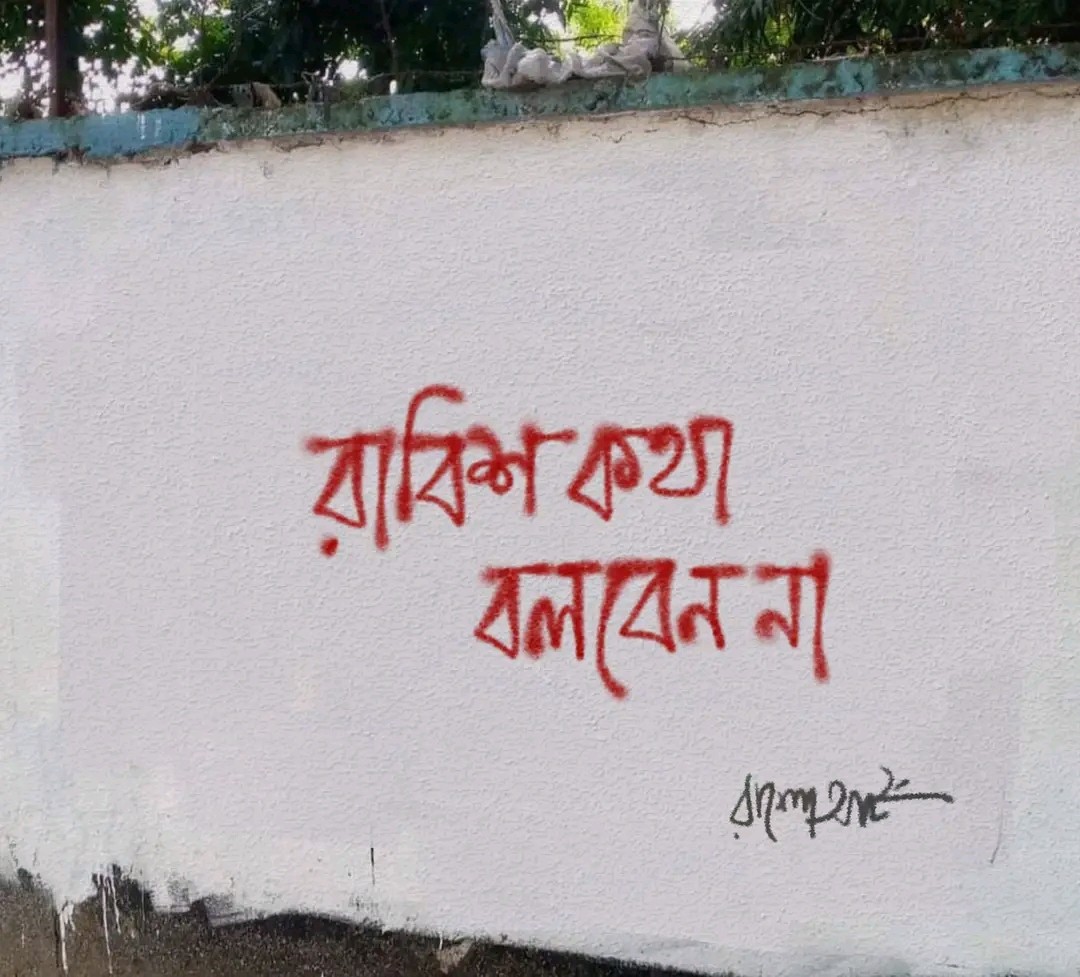 রাবিশ কথা
বলবেন না